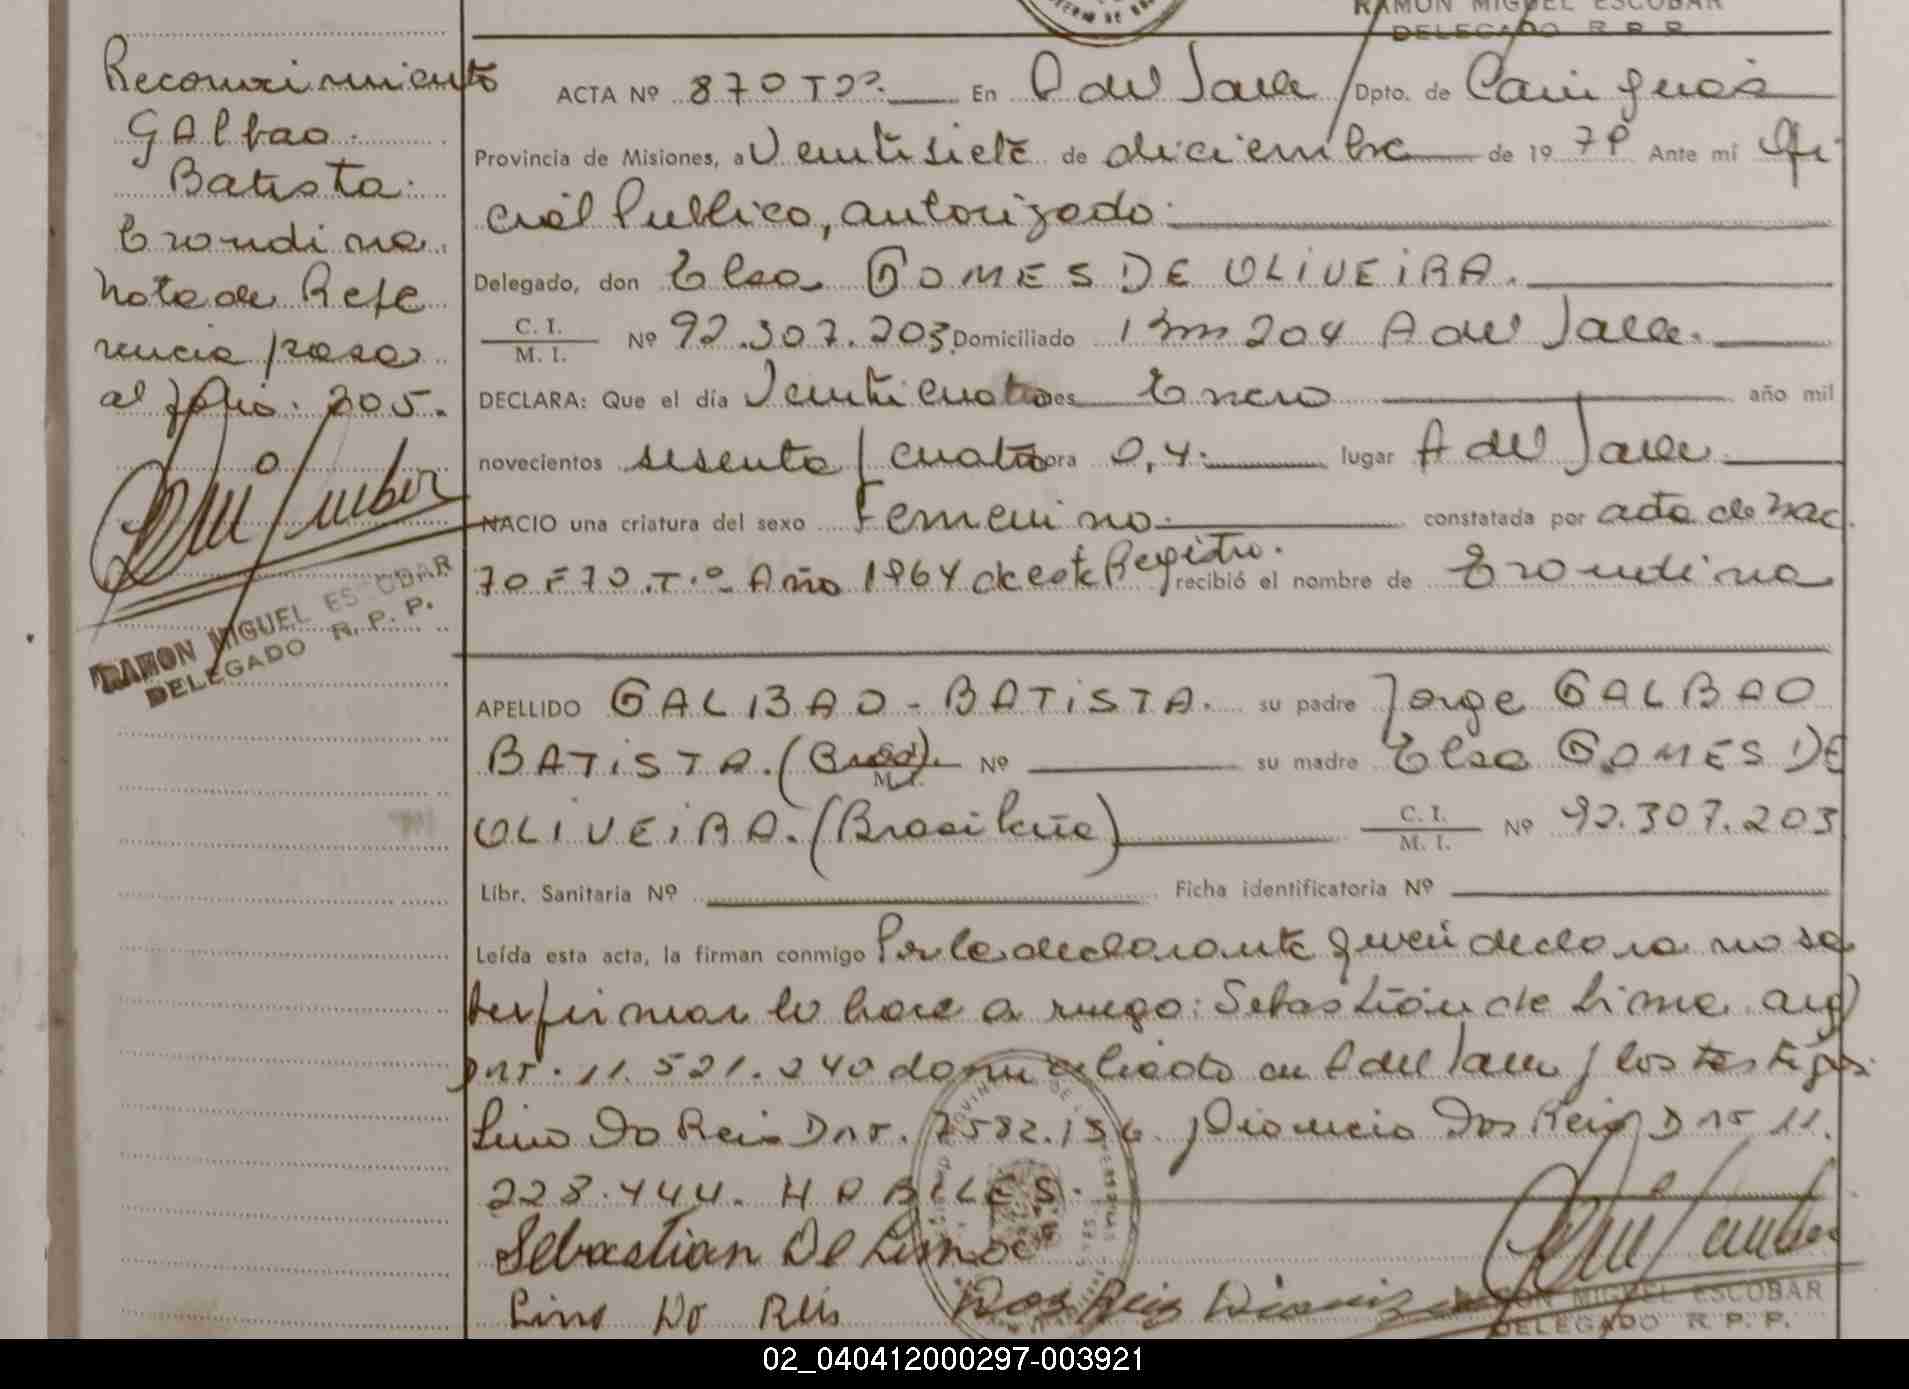 RAMON MIGUEL ESCOBAR
DELEGADO R. P. P.
Reconocimiento
GAlbao
Batista.
Erondina.
Nota de Refe
rencia pasa
al folio. 205.
RAMON MIGUEL ESCOBAR
DELEGADO R. P. P.
ACTA Nº 870 Tº 2º. En A del Valle Dpto. de Cainguás
Provincia de Misiones, a Veintisiete de diciembre de 19 79 Ante mí Ofi
cial Publico, autorizado.
Delegado, don Elsa GOMES DE OLIVEIRA.
C. I. / M. I. Nº 92.307.203. Domiciliado Km 204 A del Valle.
DECLARA: Que el día Veinticuatro mes Enero año mil
novecientos sesenta y cuatro hora 0,4. lugar A del Valle.
NACIO una criatura del sexo Femenino. constatada por acta de Nac.
70 F 70 . Tº Año 1964 de este Registro. recibió el nombre de Erondina
APELLIDO GALBAO - BATISTA. su padre Jorge GALBAO
BATISTA. (Brasil). M. I. Nº su madre Elsa GOMES DE
OLIVEIRA. (Brasileña) C. I. / M. I. Nº 92.307.203
Libr. Sanitaria Nº Ficha identificatoria Nº
Leída esta acta, la firman conmigo Por la declarante quien declara no sa
ber firmar lo hace a ruego: Sebastián de Lima arg)
Dni. 11.521.240 domiciliado en A del Valle y los testigos.
Lino Do Reis Dni. 7582.156. Dionicio Dos Reis Dni 11.
228.444. HABILES.
Sebastian De Lima
Lino Do Reis Dos Reis
RAMON MIGUEL ESCOBAR
DELEGADO R. P. P.
02_040412000297-003921